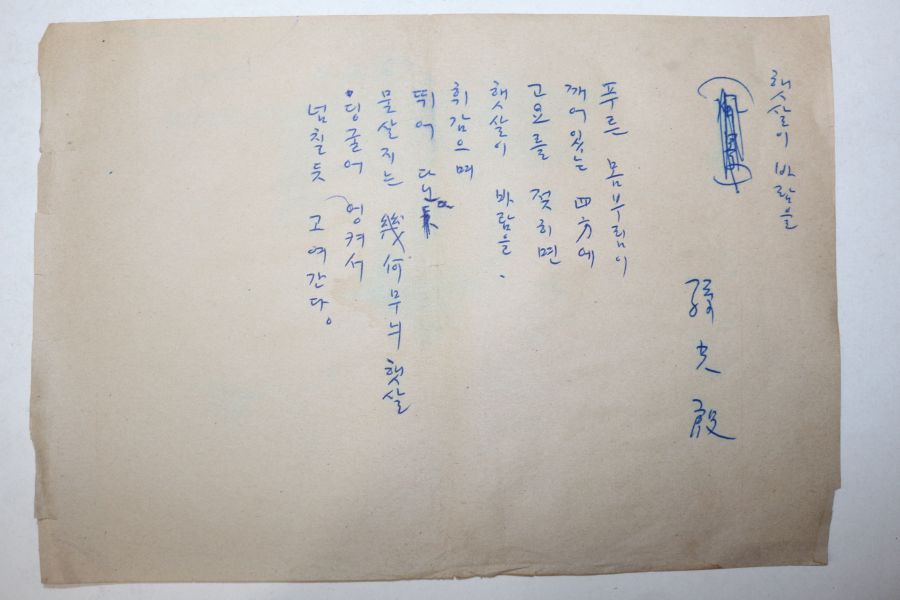 햇살이 바람을
孫光殷
푸른 몸부림이
깨어있는 四方에
고요를 젖히면
햇살이 바람을.
휘감으며
뛰어 다닌다
물살지는 幾何무늬 햇살
덩굴어 엉켜서
넘칠듯 고여간다.